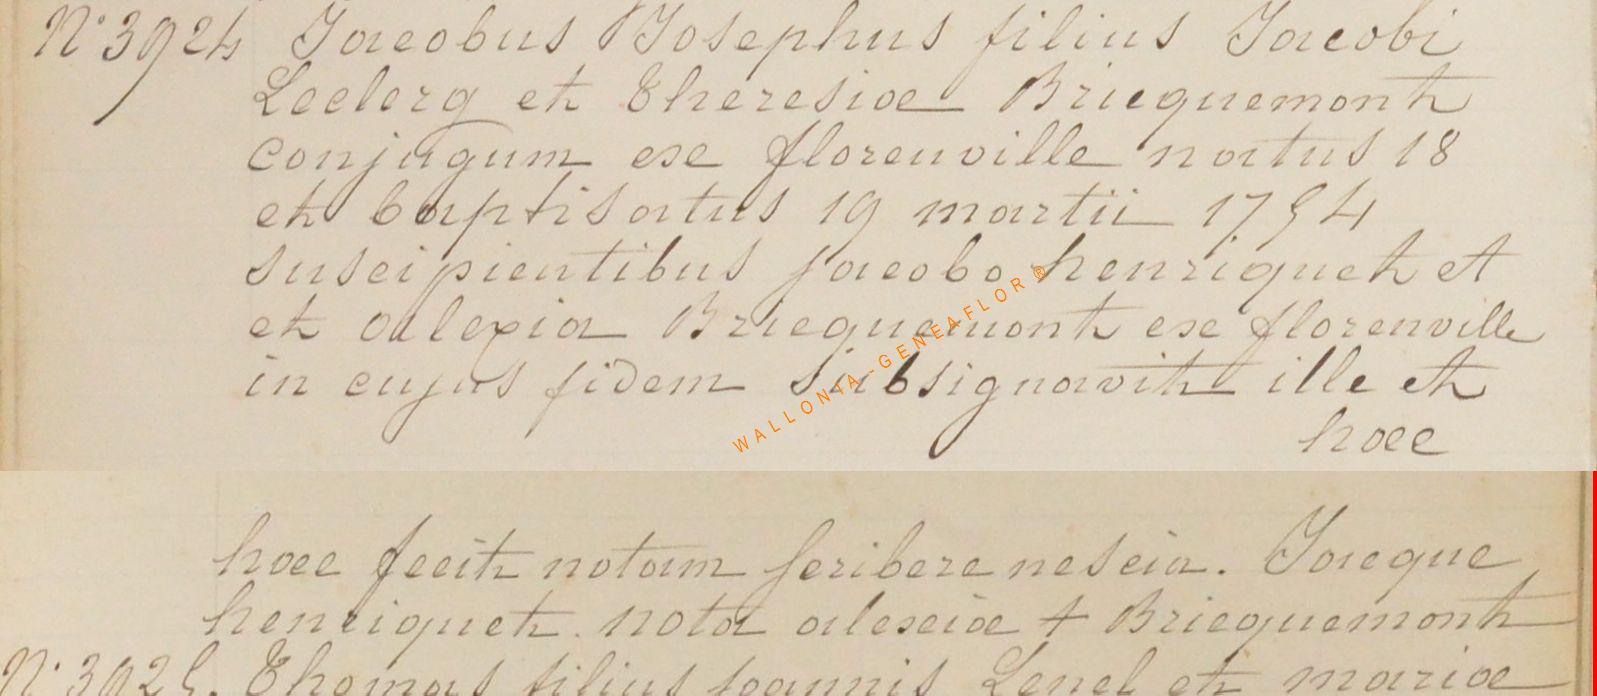 N° 3924 Jacobus Josephus filius Jacobi
Leclerq et Theresiae Briequemont
conjugum exe florenville natus 18
et baptisatus 19 martii 1754
suscipientibus jacobo henriquet et
et alexia Briequemont exe florenville
in cujus fidem subsignavit ille et
haec
WALLONIA-GENEAFLOR ®
haec fecit notam scribere nescia. Jacque
henriquet. nota alexiae + Briequemont
N° 3925. Thomas filius joannis Lenel et mariae